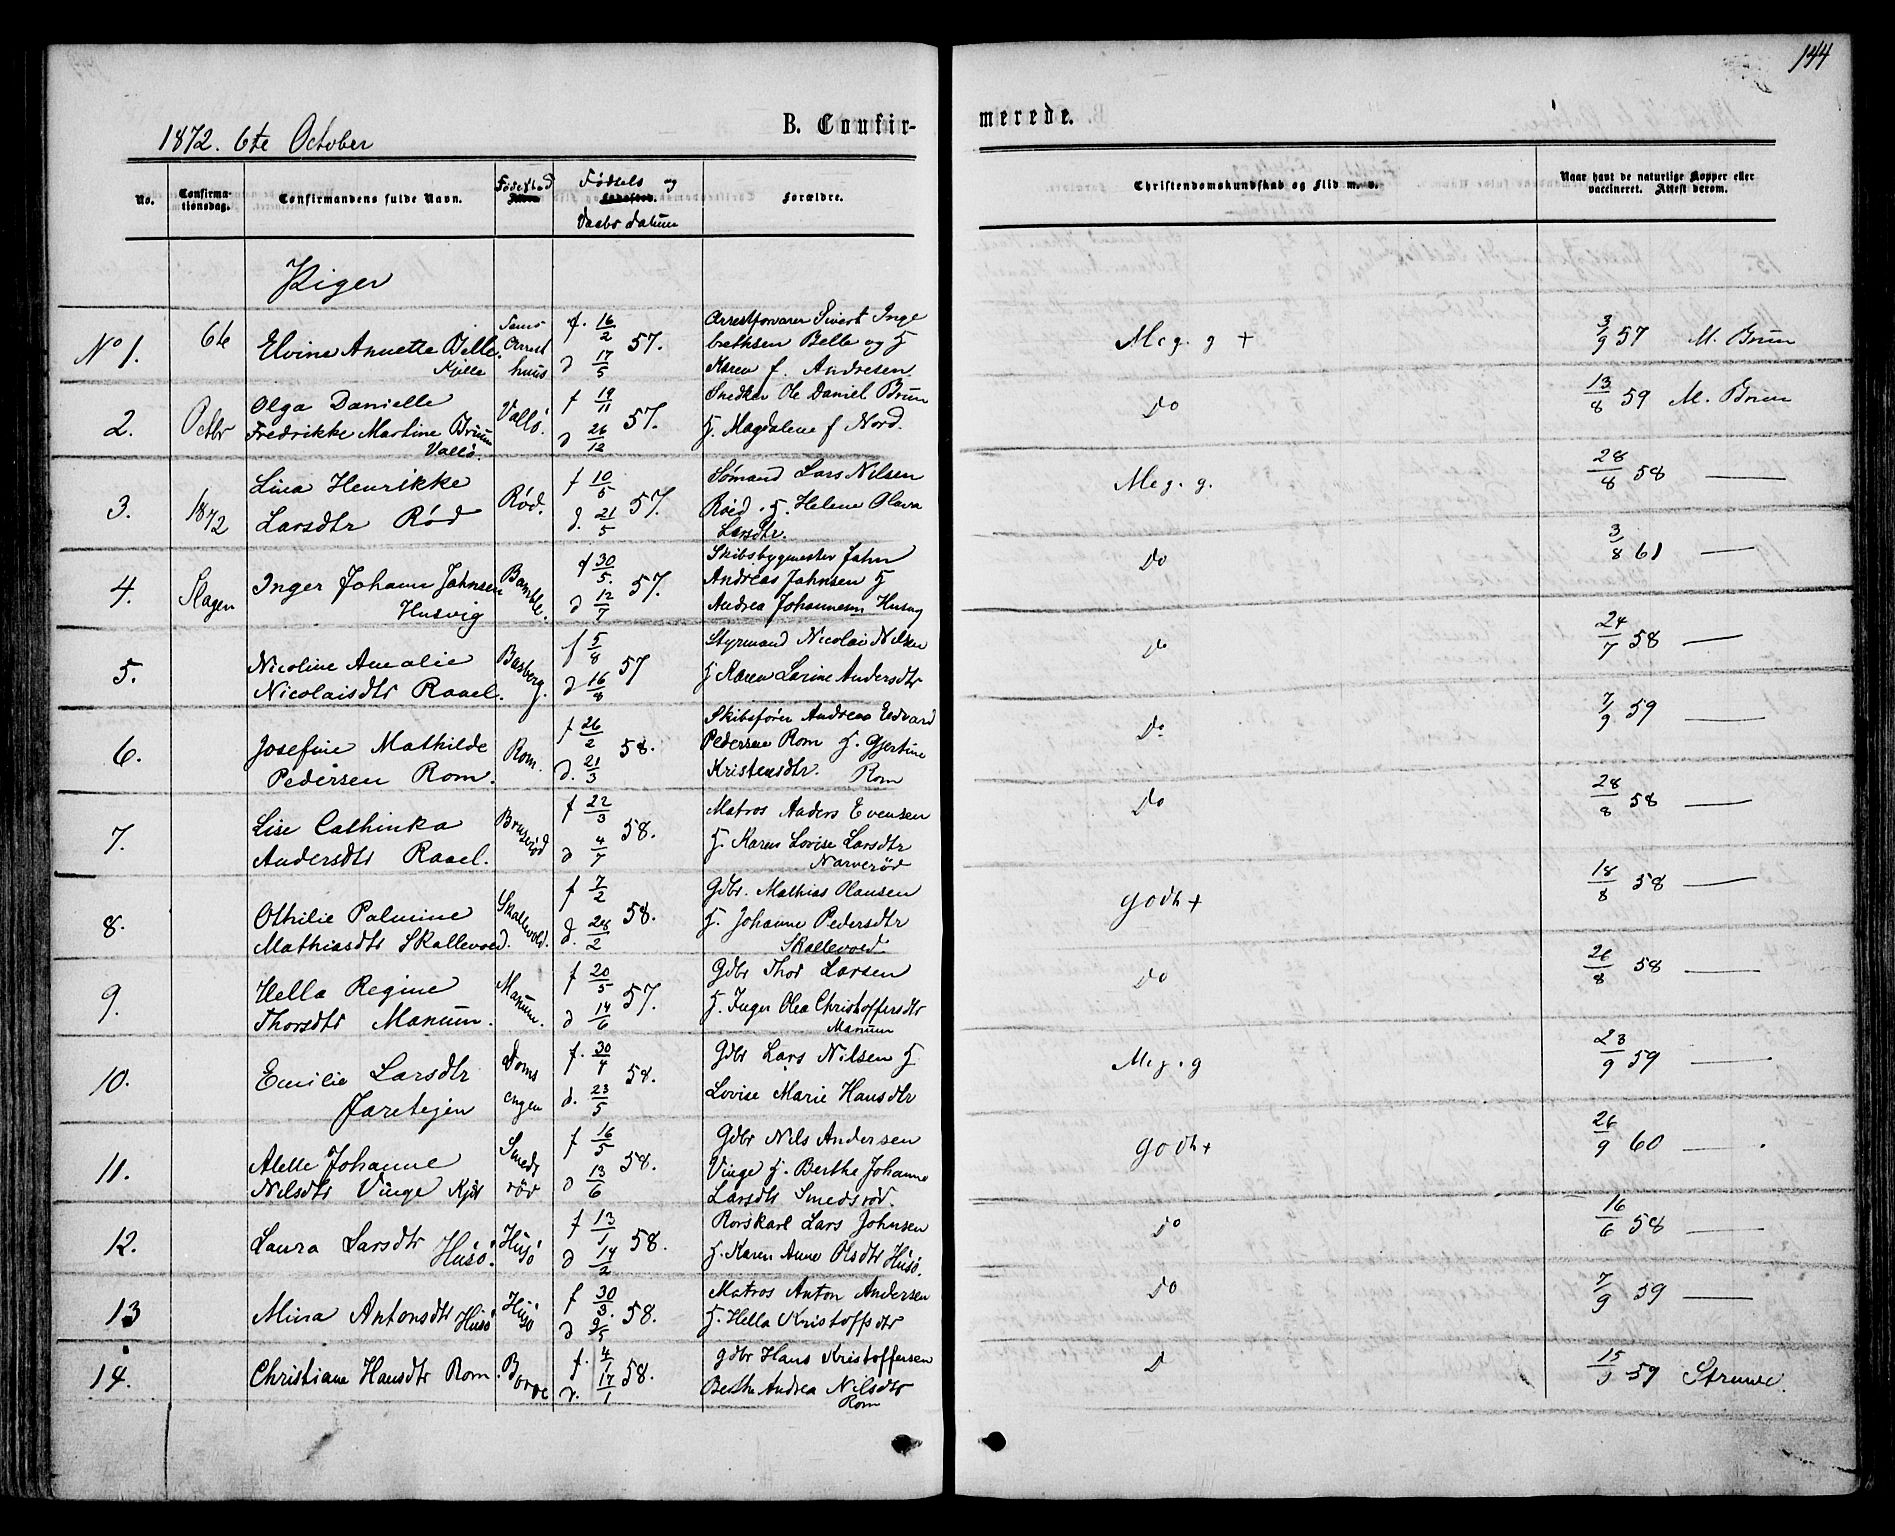 144
1872. 6te October
B. Confir-
merede.
No.
Confirma-
tionsdag.
Confirmandens fulde Navn.
Fødested
Fødsels og
Daabs datum
Forældre.
Christendomskundskab og Flid m. v.
Naar havt de naturlige Kopper eller
vaccineret. Attest derom.
Piger
No 1.
6te
Elvine Annette Belle
Kjelle
Arrest
huus
f. 16/2
d 17/5
57.
Arrestforvarer Sivert Inge
brethsen Belle og H
Karen f. Andresen
Meg. g +
3/9 57 M. Brun
2.
Octbr
Olga Danielle
Fredrikke Martine Bruun
Vallø.
Vallö.
f 19/11
d 26/12
57.
Snedker Ole Daniel Brun
H. Magdalene f Nord.
Do
13/8 59 M. Brun
3.
1872
Lina Henrikke
Larsdtr Rød
Rød.
f 10/5
d. 21/5
57.
Sømand Lars Nilsen
Røed . H. Helene Olava
Larsdtr.
Meg. g.
28/8 58 —
4.
Slagen
Inger Johann Jahnsen
Husvig
Bamble.
f 30/5.
d 12/7
57.
Skibsbygmester Jahn
Andreas Jahnsen H
Andrea Johannesen Husvig
Do
3/8 61 —
5.
Nicoline Amalie
Nicolaisdtr Raael.
Basberg.
f 5/8
d 16/8
57
Styrmand Nicolai Nilsen
H Karen Larine Andersdtr
Do
24/7 58 —
6.
Josefine Mathilde
Pedersen Rom.
Rom.
f 26/2
d. 21/3
58.
Skibsfører Andreas Edvard
Pedersen Rom H. Gjertine
Kristensdtr. Rom
Do
7/9 59 —
7.
Lise Cathinka
Andersdtr Raael.
Bruserød
f 22/3
d 4/7
58.
Matros Anders Evensen
H. Karen Lovise Larsdtr
Narverød
Do
28/8 58 —
8.
Othilie Palmine
Mathiasdtr Skallevold.
Skallevold.
f 7/2
d. 28/2
58.
Gdbr. Mathias Olausen
H. Johanne Pedersdtr
Skallevold
godt +
18/8 58 —
9.
Hella Regine
Thorsdtr Manum.
Manum.
f 20/5
d 14/6
57.
Gdbr Thor Larsen
H. Inger Olea Christoffersdtr
Manum
Do
26/8 58 —
10.
Emilie Larsdtr
Jaretejen
Doms
engen
f. 30/4
d. 23/5
58.
Gdbr Lars Nilsen H
Lovise Marie Hansdtr
Meg. g
23/9 59 —
11.
Alelle Johanne
Nilsdtr Vinge
Smeds
rød
f 16/5
d 13/6
58.
Gdbr Nils Andersen
Vinge H. Berthe Johanne
Larsdtr Smedsrød.
godt +
26/9 60 —
12.
Laura Larsdtr Husö.
Husö
f 13/1
d 14/2
58.
Rorskarl Lars Johnsen
H. Karen Anne Olsdtr Husø.
Do
16/6 58 —
13
Mina Antonsdtr Husö
Husö
f 30/3.
d 9/5
58.
Matros Anton Andersen
H. Hella Kristoffsdtr
Do
7/9 59 —
14.
Christiane Hansdtr Rom.
Borre
f. 4/1
d. 17/1
58.
gdbr Hans Kristoffersen
Berthe Andrea Nilsdtr
Rom
D
15/9 59 Struwe.